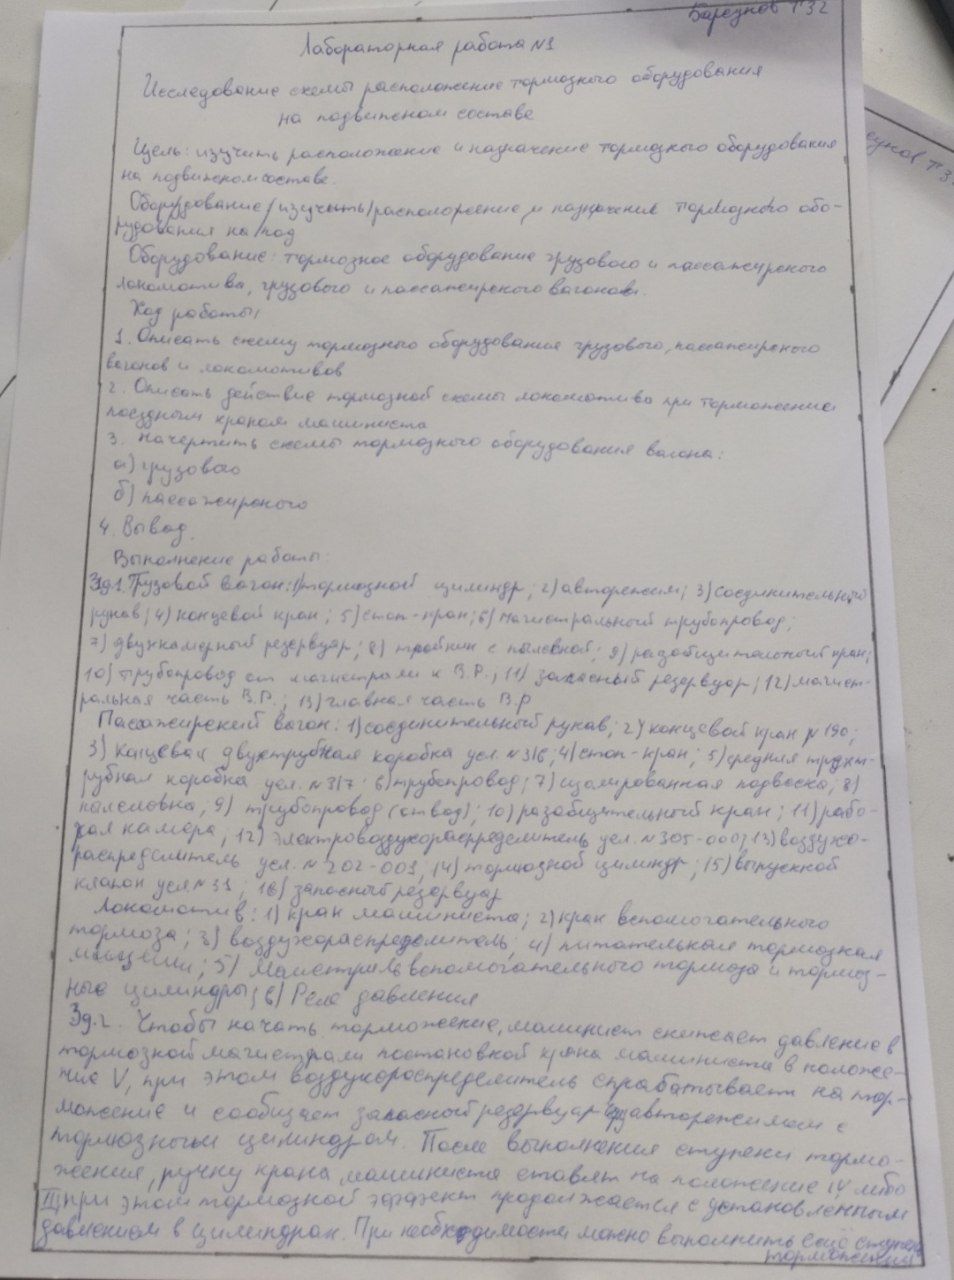 Барсуков Т32
Лабораторная работа №1
Исследование схемы расположение тормозного оборудования
на подвижном составе
Цель: изучить расположение и назначение тормозного оборудования
на подвижном составе.
Оборудование /изучить/ расположение и назначение тормозного обо-
рудования на под
Оборудование: тормозное оборудование грузового и пассажирского
локомотива, грузового и пассажирского вагонов.
Ход работы:
1. Описать схему тормозного оборудования грузового, пассажирского
вагонов и локомотивов
2. Описать действие тормозной схемы локомотива при торможение
поездным краном машиниста
3. Начертить схемы тормозного оборудования вагона:
а) грузового
б) пассажирского
4. Вывод.
Выполнение работы:
Зд1. Грузовой вагон: 1) тормозной цилиндр; 2) авторежим; 3) соединительный
рукав; 4) концевой кран; 5) стоп-кран; 6) магистральный трубопровод;
7) двухкамерный резервуар; 8) тройник с пылевкой; 9) разобщительный кран;
10) трубопровод от магистрали к В.Р.; 11) запасный резервуар; 12) магист-
ральная часть В.Р.; 13) главная часть В.Р
Пассажирский вагон: 1) соединительный рукав; 2) концевой кран №190;
3) концевая двухтрубная коробка усл. №316; 4) стоп-кран; 5) средняя трехт-
рубная коробка усл. №317; 6) трубопровод; 7) изолированная подвеска; 8)
пылеловка; 9) трубопровод (отвод); 10) разобщительный кран; 11) рабо-
чая камера; 12) электровоздухораспределитель усл. №305-000; 13) воздухо-
распределитель усл. №292-001; 14) тормозной цилиндр; 15) выпускной
клапан усл. №31; 16) запасный резервуар
Локомотив: 1) кран машиниста; 2) кран вспомогательного
тормоза; 3) воздухораспределитель; 4) питательная тормозная
5) Магистраль вспомогательного тормоза и тормоз-
ные цилиндры; 6) Реле давления
Зд.2. Чтобы начать торможение, машинист снижает давление в
тормозной магистрали постановкой крана машиниста в положе-
ние V, при этом воздухораспределитель срабатывает на тор-
можение и сообщает запасной резервуар авторежимом с
тормозным цилиндром. После выполнения ступени тормо-
жения, ручку крана машиниста ставят на положение IV либо
III при этом тормозной эффект продолжается с установленным
давлением в цилиндрах. При необходимости можно выполнить ещё ступень
торможения